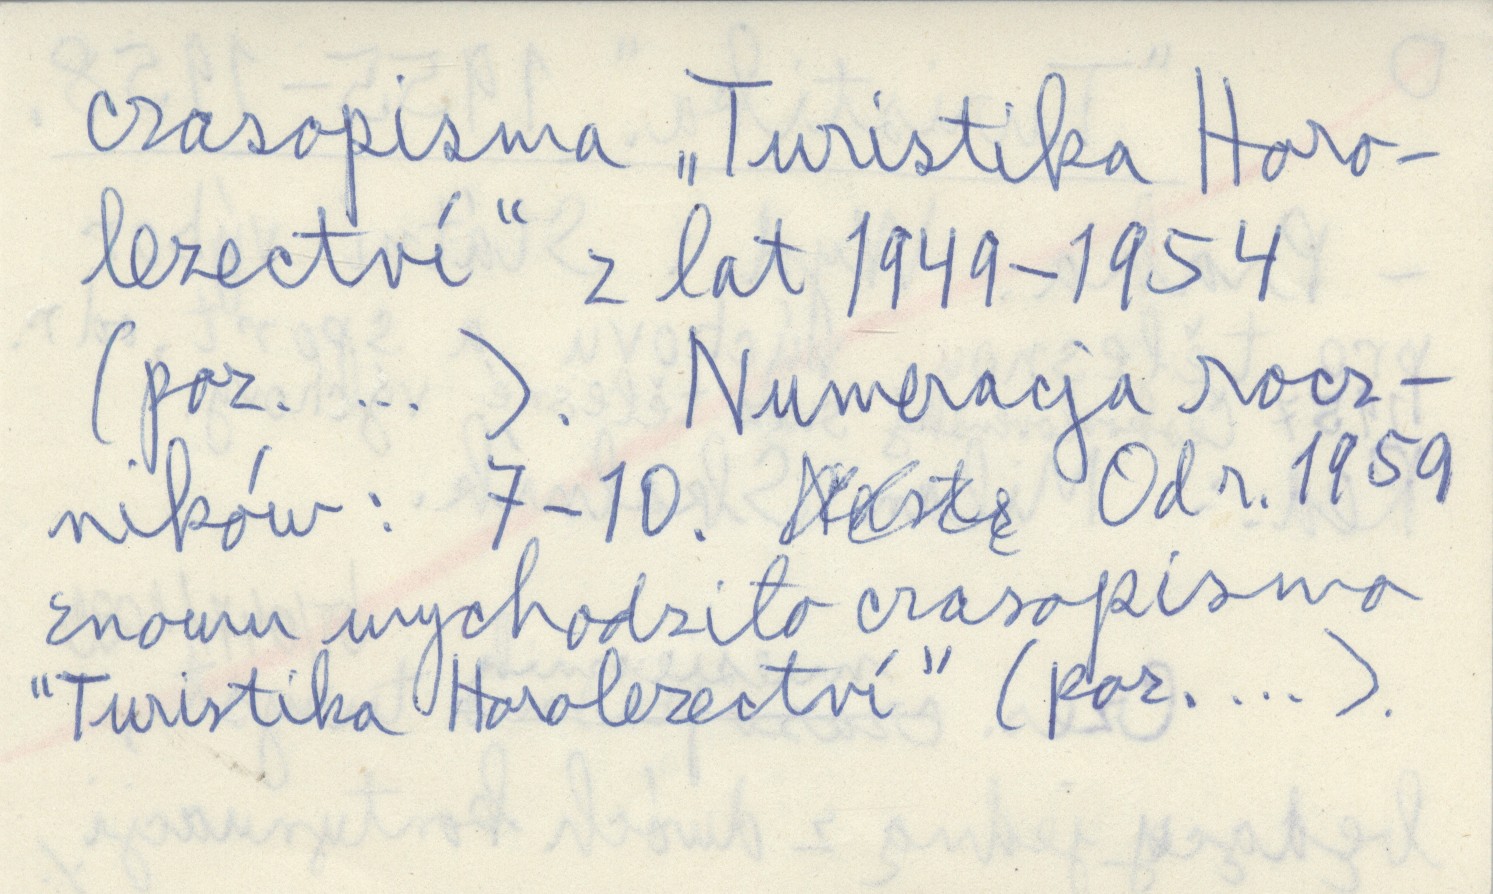 czasopisma „Turistika Horo-
lezectví“ z lat 1949-1954
(poz. ... ). Numeracja rocz-
ników: 7-10. Od r. 1959
znowu wychodziło czasopismo
“Turistika Horolezectví” (poz. ... ).